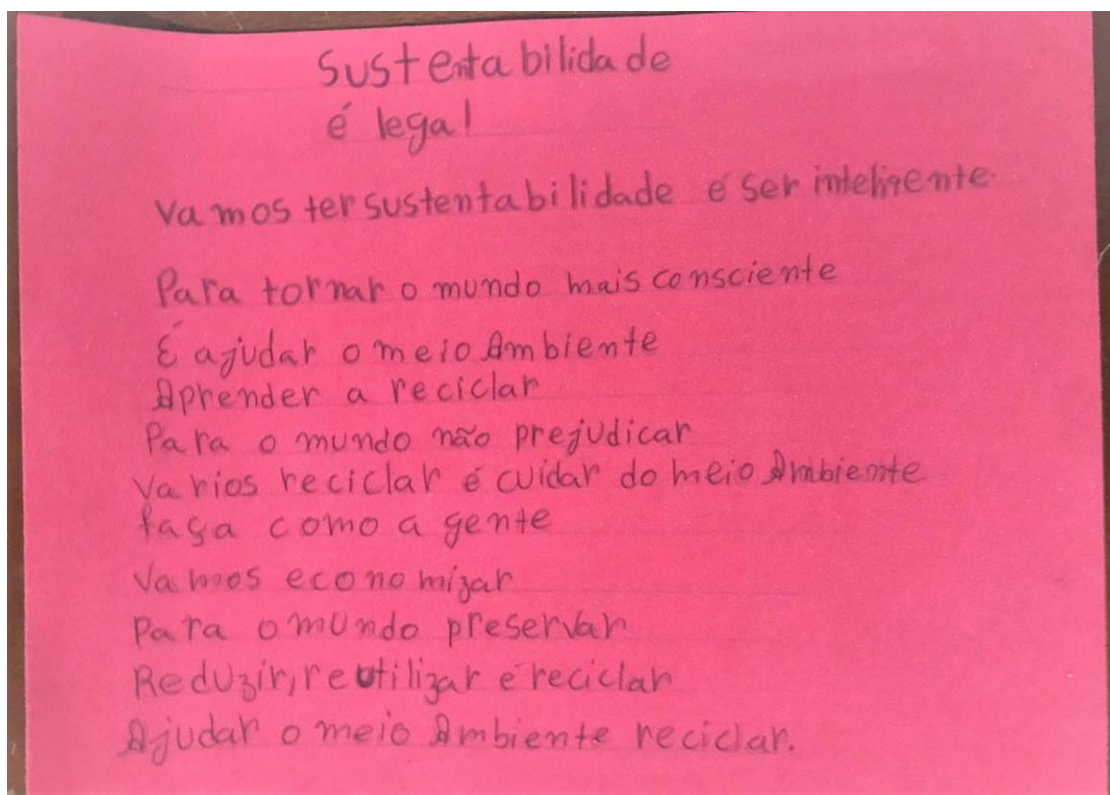 Sustentabilidade
é legal
Vamos ter sustentabilidade é ser inteligente.
Para tornar o mundo mais consciente
É ajudar o meio Ambiente
Aprender a reciclar
Para o mundo não prejudicar
Varios reciclar é cuidar do meio Ambiente
faça como a gente
Vamos economizar
Para o mundo preservar
Reduzir, reutilizar é reciclar
Ajudar o meio Ambiente reciclar.